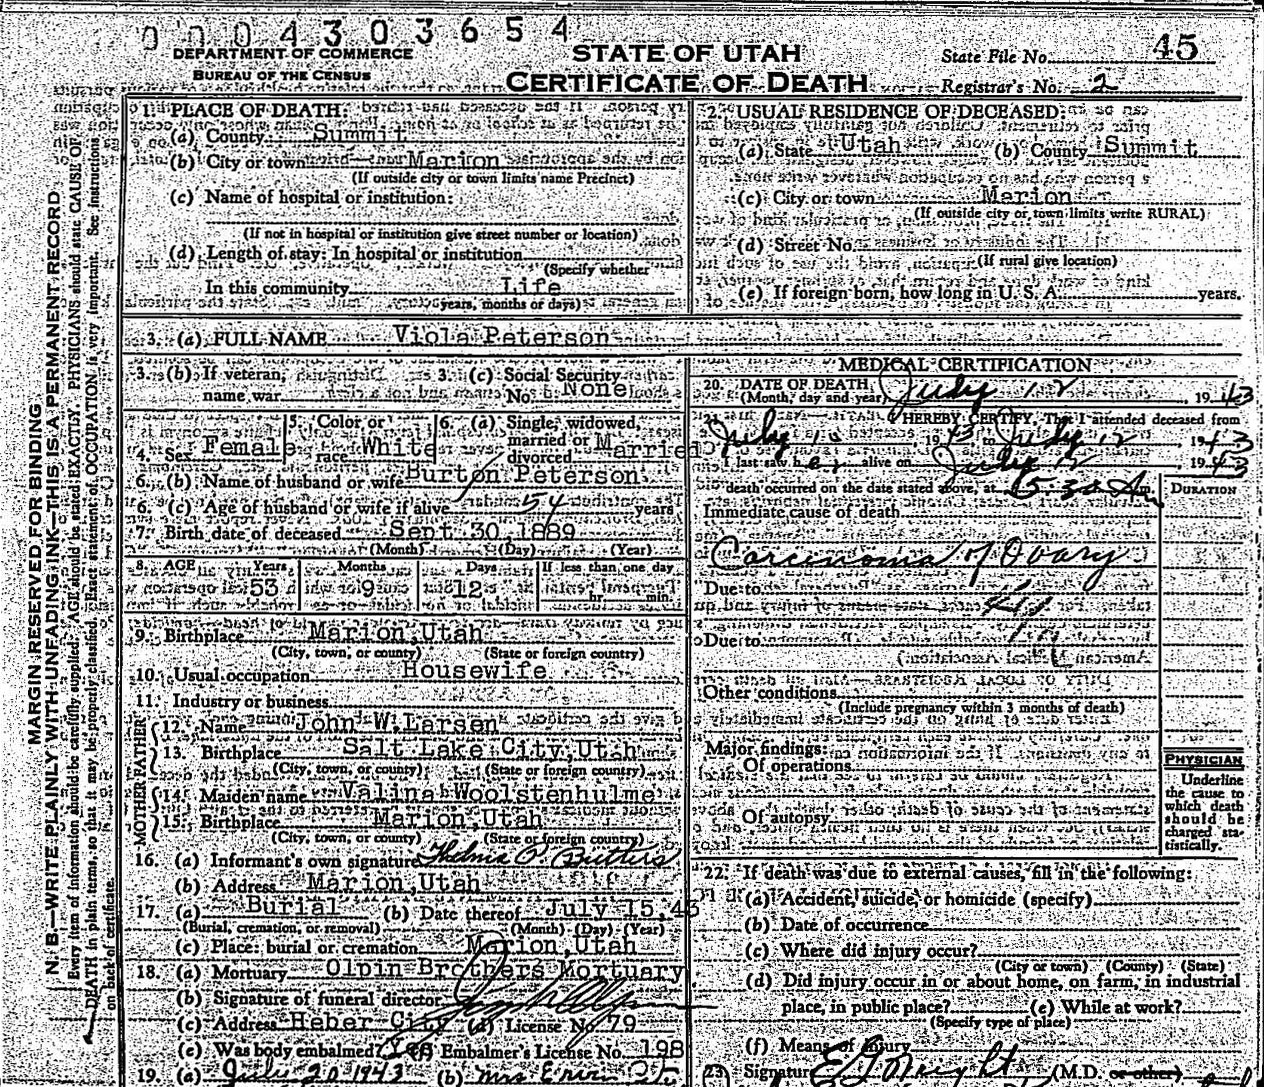 0004303654
DEPARTMENT OF COMMERCE
BUREAU OF THE CENSUS
STATE OF UTAH
CERTIFICATE OF DEATH
State File No. 45
Registrar's No. 2
MARGIN RESERVED FOR BINDING
N. B.—WRITE PLAINLY WITH UNFADING INK—THIS IS A PERMANENT RECORD
Every item of information should be carefully supplied. AGE should be stated EXACTLY. PHYSICIANS should state CAUSE OF
DEATH in plain terms, so that it may be properly classified. Exact statement of OCCUPATION is very important. See instructions
on back of certificate.
1. PLACE OF DEATH:
(a) County Summit
(b) City or town Marion
(If outside city or town limits name Precinct)
(c) Name of hospital or institution:
(If not in hospital or institution give street number or location)
(d) Length of stay: In hospital or institution
(Specify whether
In this community Life
years, months or days)
2. USUAL RESIDENCE OF DECEASED:
(a) State Utah (b) County Summit
(c) City or town Marion
(If outside city or town limits write RURAL)
(d) Street No.
(If rural give location)
(e) If foreign born, how long in U. S. A. years.
3. (a) FULL NAME Viola Peterson
3. (b) If veteran, name war
3. (c) Social Security No. None
4. Sex Female 5. Color or race White 6. (a) Single, widowed, married or divorced Married
6. (b) Name of husband or wife Burton Peterson
6. (c) Age of husband or wife if alive 54 years
7. Birth date of deceased Sept 30, 1889
(Month) (Day) (Year)
8. AGE Years Months Days If less than one day
53 9 12 hr. min.
9. Birthplace Marion, Utah
(City, town, or county) (State or foreign country)
10. Usual occupation Housewife
11. Industry or business
FATHER
12. Name John W. Larsen
13. Birthplace Salt Lake City, Utah
(City, town, or county) (State or foreign country)
MOTHER
14. Maiden name Valina Woolstenhulme
15. Birthplace Marion, Utah
(City, town, or county) (State or foreign country)
16. (a) Informant's own signature Thelma P. Butters
(b) Address Marion, Utah
17. (a) Burial (b) Date thereof July 15, 43
(Burial, cremation, or removal) (Month) (Day) (Year)
(c) Place: burial or cremation Marion, Utah
18. (a) Mortuary Olpin Brothers Mortuary
(b) Signature of funeral director
(c) Address Heber City (d) License No. 79
(e) Was body embalmed? Yes (f) Embalmer's License No. 198
19. (a) July 20 1943 (b) Mrs
MEDICAL CERTIFICATION
20. DATE OF DEATH July 12, 1943
(Month, day and year)
21. I HEREBY CERTIFY, That I attended deceased from
July 10 1943 to July 12, 1943
I last saw her alive on July 12, 1943
death occurred on the date stated above, at 5:30 Am
DURATION
Immediate cause of death
Carcinoma of Ovary
Due to
Due to
Other conditions
(Include pregnancy within 3 months of death)
Major findings:
Of operations
Of autopsy
PHYSICIAN
Underline
the cause to
which death
should be
charged sta-
tistically.
22. If death was due to external causes, fill in the following:
(a) Accident, suicide, or homicide (specify)
(b) Date of occurrence
(c) Where did injury occur?
(City or town) (County) (State)
(d) Did injury occur in or about home, on farm, in industrial
place, in public place? (e) While at work?
(Specify type of place)
(f) Means of injury
23. Signature E G Wright (M.D. or other)